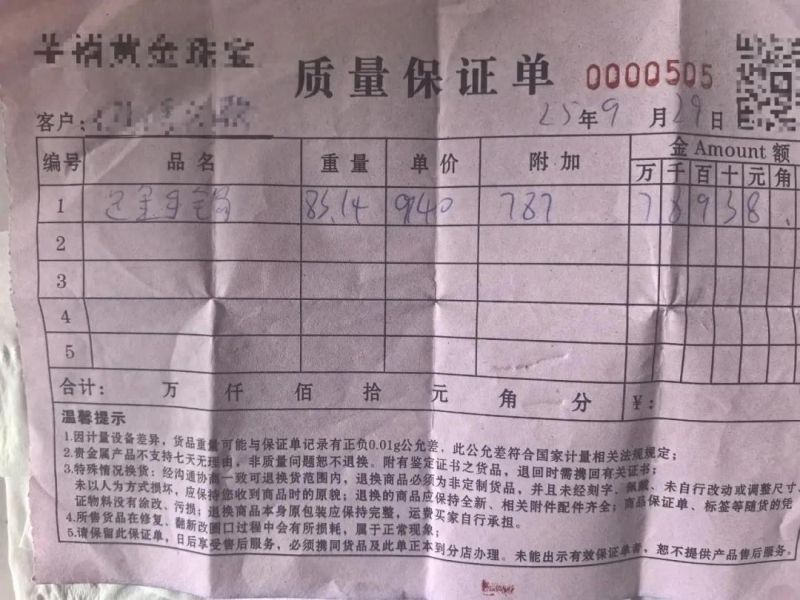 黄金珠宝
质量保证单 0000505
客户: 25年9月29日
编号 品名 重量 单价 附加 金Amount额
万千百十元角
1 足金手镯 83.14 940 787 78938
2
3
4
5
合计: 万 仟 佰 拾 元 角 分 ¥:
温馨提示
1.因计量设备差异,货品重量可能与保证单记录有正负0.01g公允差,此公允差符合国家计量相关法规规定;
2.贵金属产品不支持七天无理由,非质量问题恕不退换。附有鉴定证书之货品,退回时需携回有关证书;
3.特殊情况换货:经沟通协商一致可退换货范围内,退换商品必须为非定制货品,并且未经刻字、佩戴、未自行改动或调整尺寸、
未以人为方式损坏,应保持您收到商品时的原貌;退换的商品应保持全新、相关附件配件齐全;商品保证单、标签等随货的凭
证物料没有涂改、污损;退换商品本身原包装应保持完整,运费买家自行承担。
4.所售货品在修复、翻新改圈口过程中会有所损耗,属于正常现象;
5.请保留此保证单,日后享受售后服务,必须携同货品及此单正本到分店办理。未能出示有效保证单者,恕不提供产品售后服务。